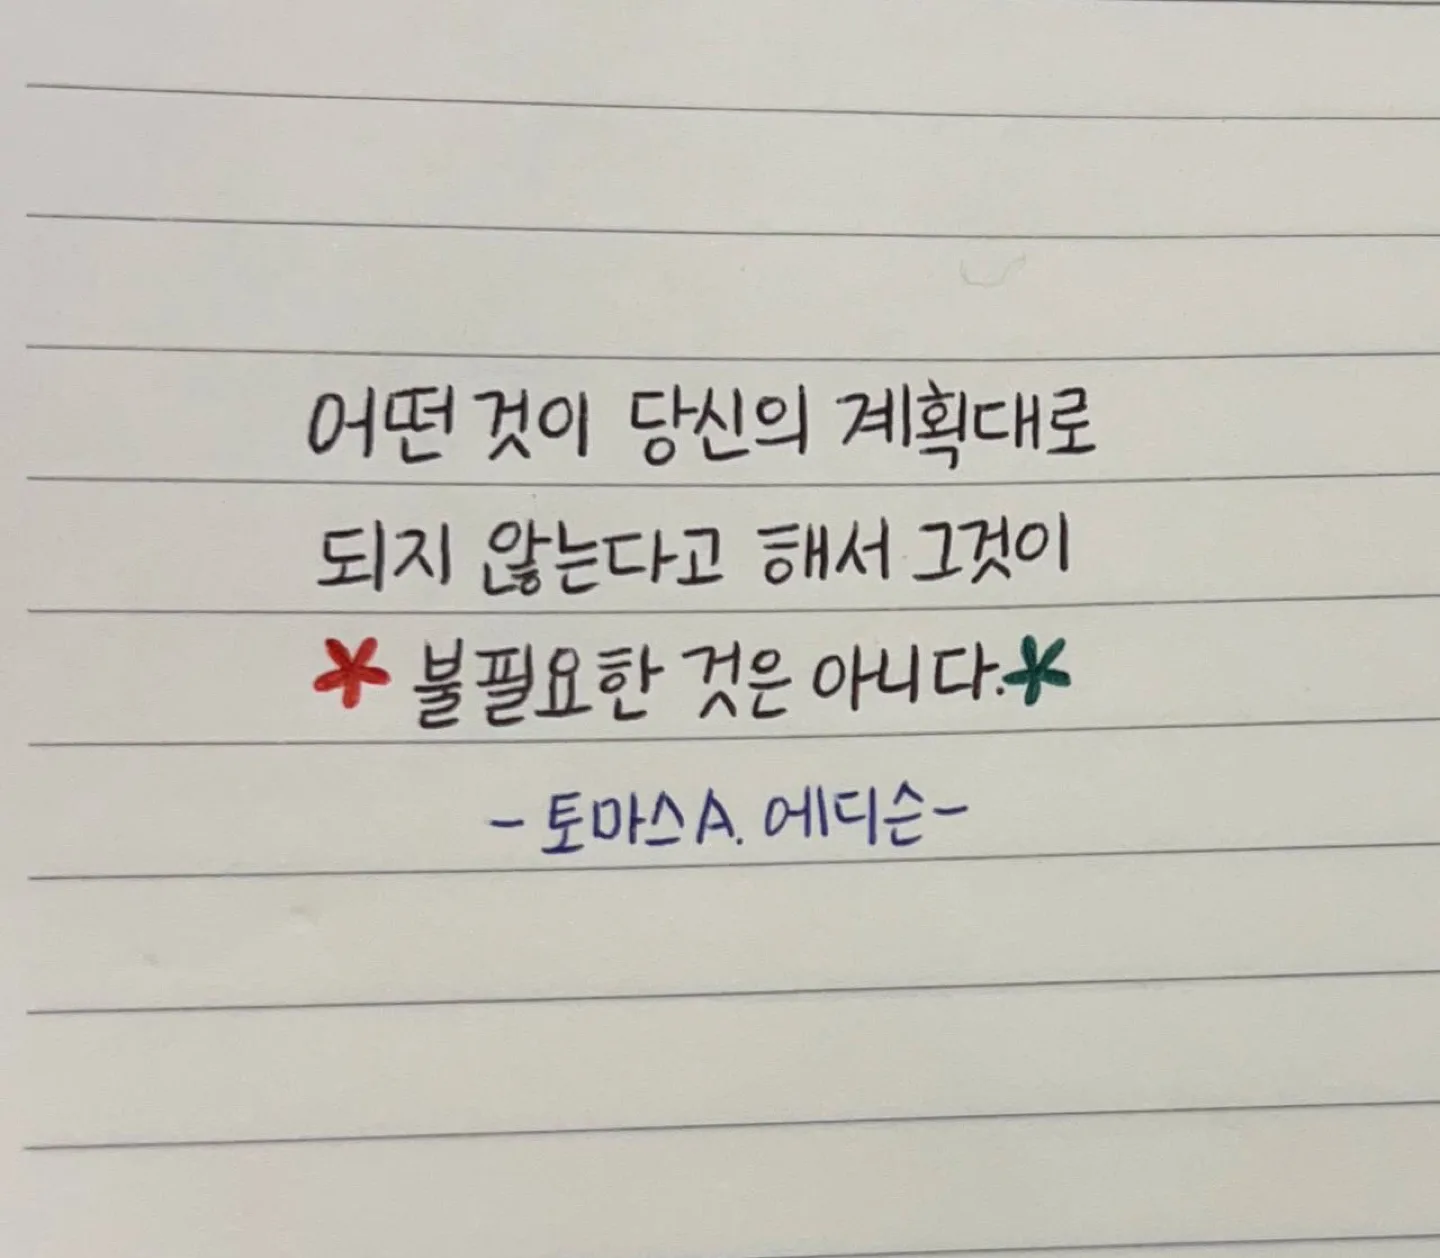 어떤 것이 당신의 계획대로
되지 않는다고 해서 그것이
* 불필요한 것은 아니다.*
- 토마스 A. 에디슨 -